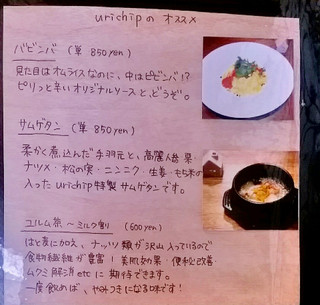 urichipの オススメ
バビンバ (単 850yen)
見た目はオムライスなのに、中はビビンバ!?
ピリッと辛いオリジナルソースと、どうぞ。
サムゲタン (単 850yen)
柔かく煮込んだ手羽元と、高麗人参
ナツメ・松の実・ニンニク・生姜・もち米の
入った urichip特製 サムゲタンです。
ユルム茶 〜ミルク割 (600yen)
はと麦に加え、ナッツ類が沢山入っているので
食物繊維が豊富! 美肌効果・便秘改善
ムクミ解消 etc に期待できます。
一度飲めば、やみつきになる味です!